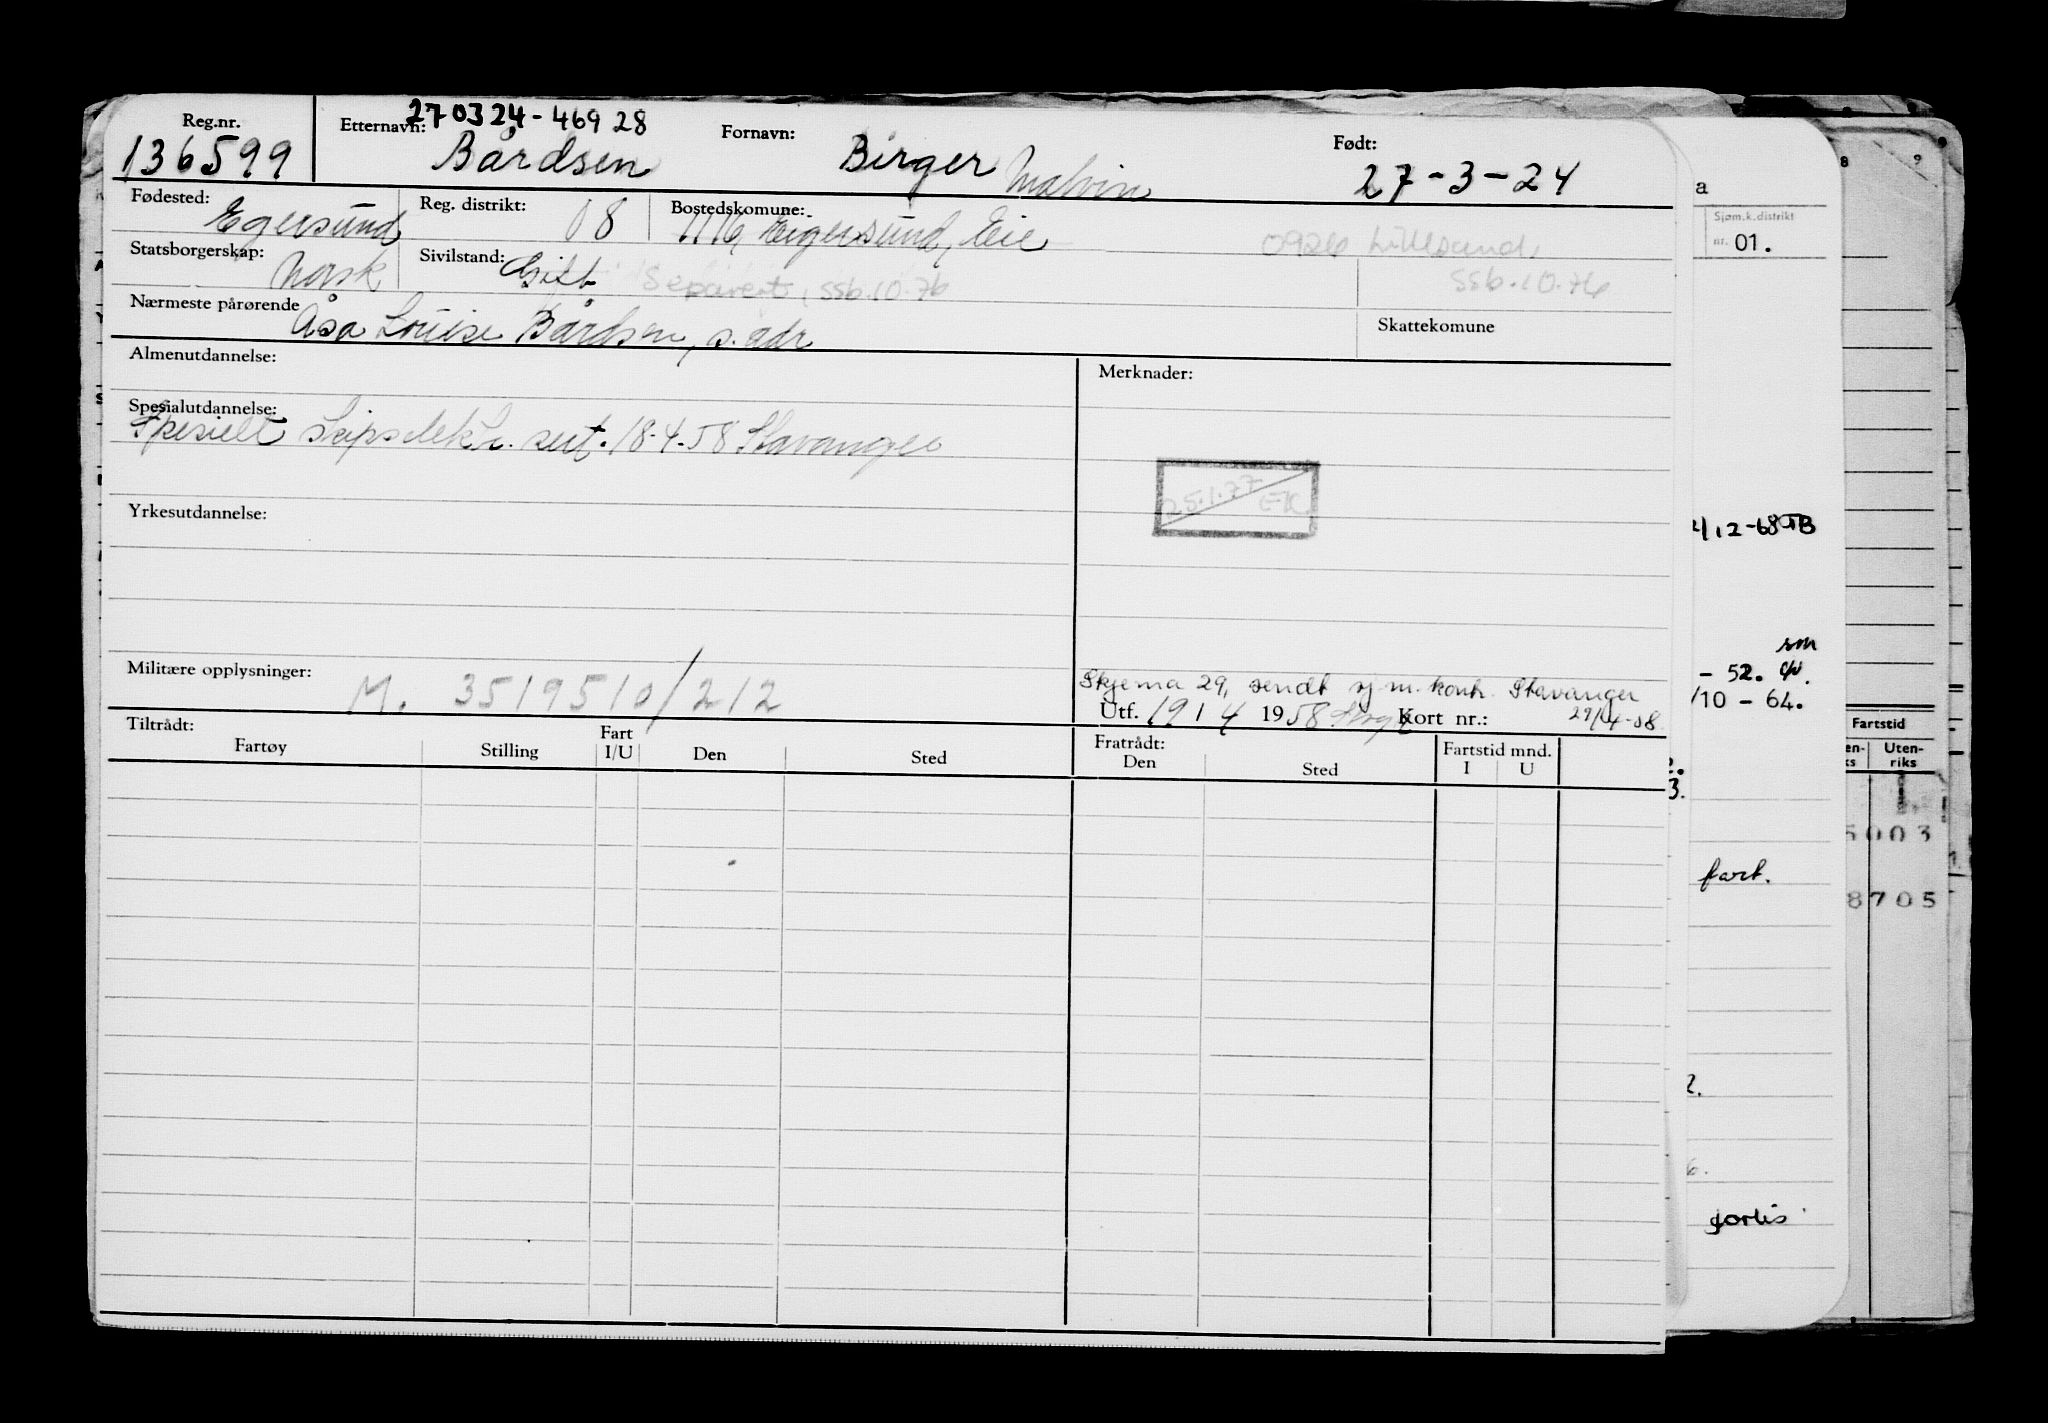 Reg.nr. 136599
270324-46928
Etternavn: Bårdsen Fornavn: Birger Malvin Født: 27-3-24
Fødested: Egersund Reg. distrikt: 08 Bostedskomune: 1116, Eigersund, Eie
0926 Lillesand, ssb.10.76
Statsborgerskap: Norsk Sivilstand: Gift Separert, ssb.10.76
Nærmeste pårørende Åsa Louise Bårdsen, s. adr Skattekomune
Almenutdannelse: Merknader:
Spesialutdannelse:
Spesielt sert. 18-4-58 Stavanger
25.1.77 EK
Yrkesutdannelse:
Militære opplysninger: M. 3519510/212
Skjema 29, sendt sj.m. kontr. Stavanger
Utf. 19 1 4 1958 Kort nr.: 29/4-58
Tiltrådt: Fratrådt:
Fartøy Stilling Fart I/U Den Sted Den Sted Fartstid mnd. I U
a
Sjøm.k.distrikt
nr. 01.
12-68 TB
- 52.
/10 - 64.
3.
fart.
2.
6.
gortis
8 9
Fartstid
en- Uten-
ks riks
5003
8705